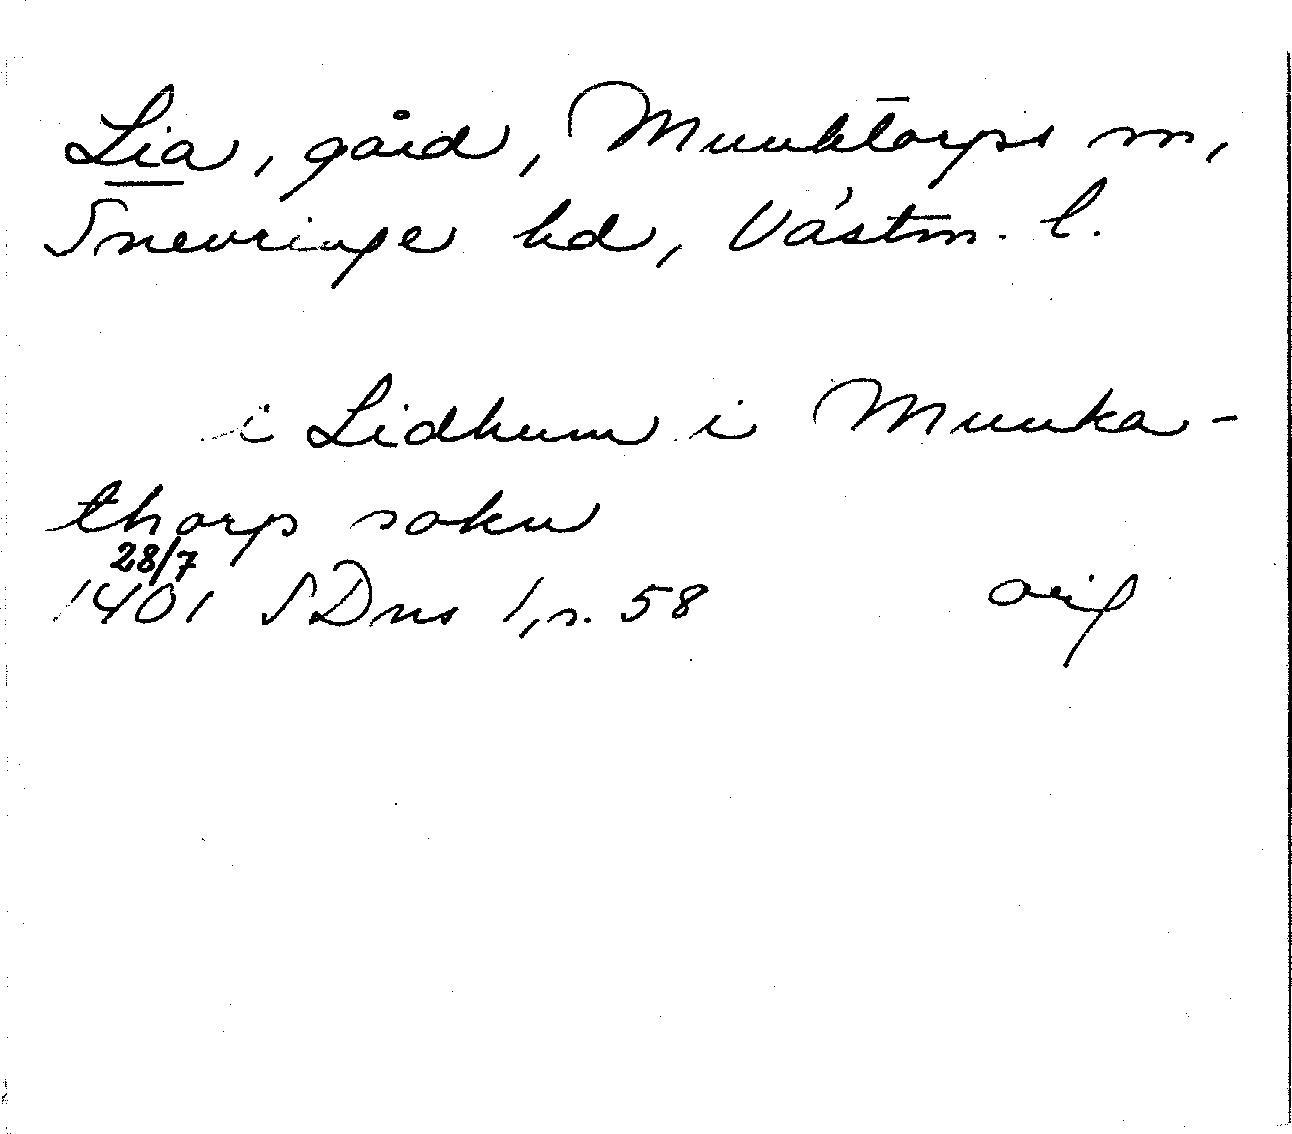 Lia, gård, Munktorps sn,
Snevringe hd, Västm. l.
i Lidhum i Munka-
thorp sokn
28/7
1401 SDns 1, s. 58 orig